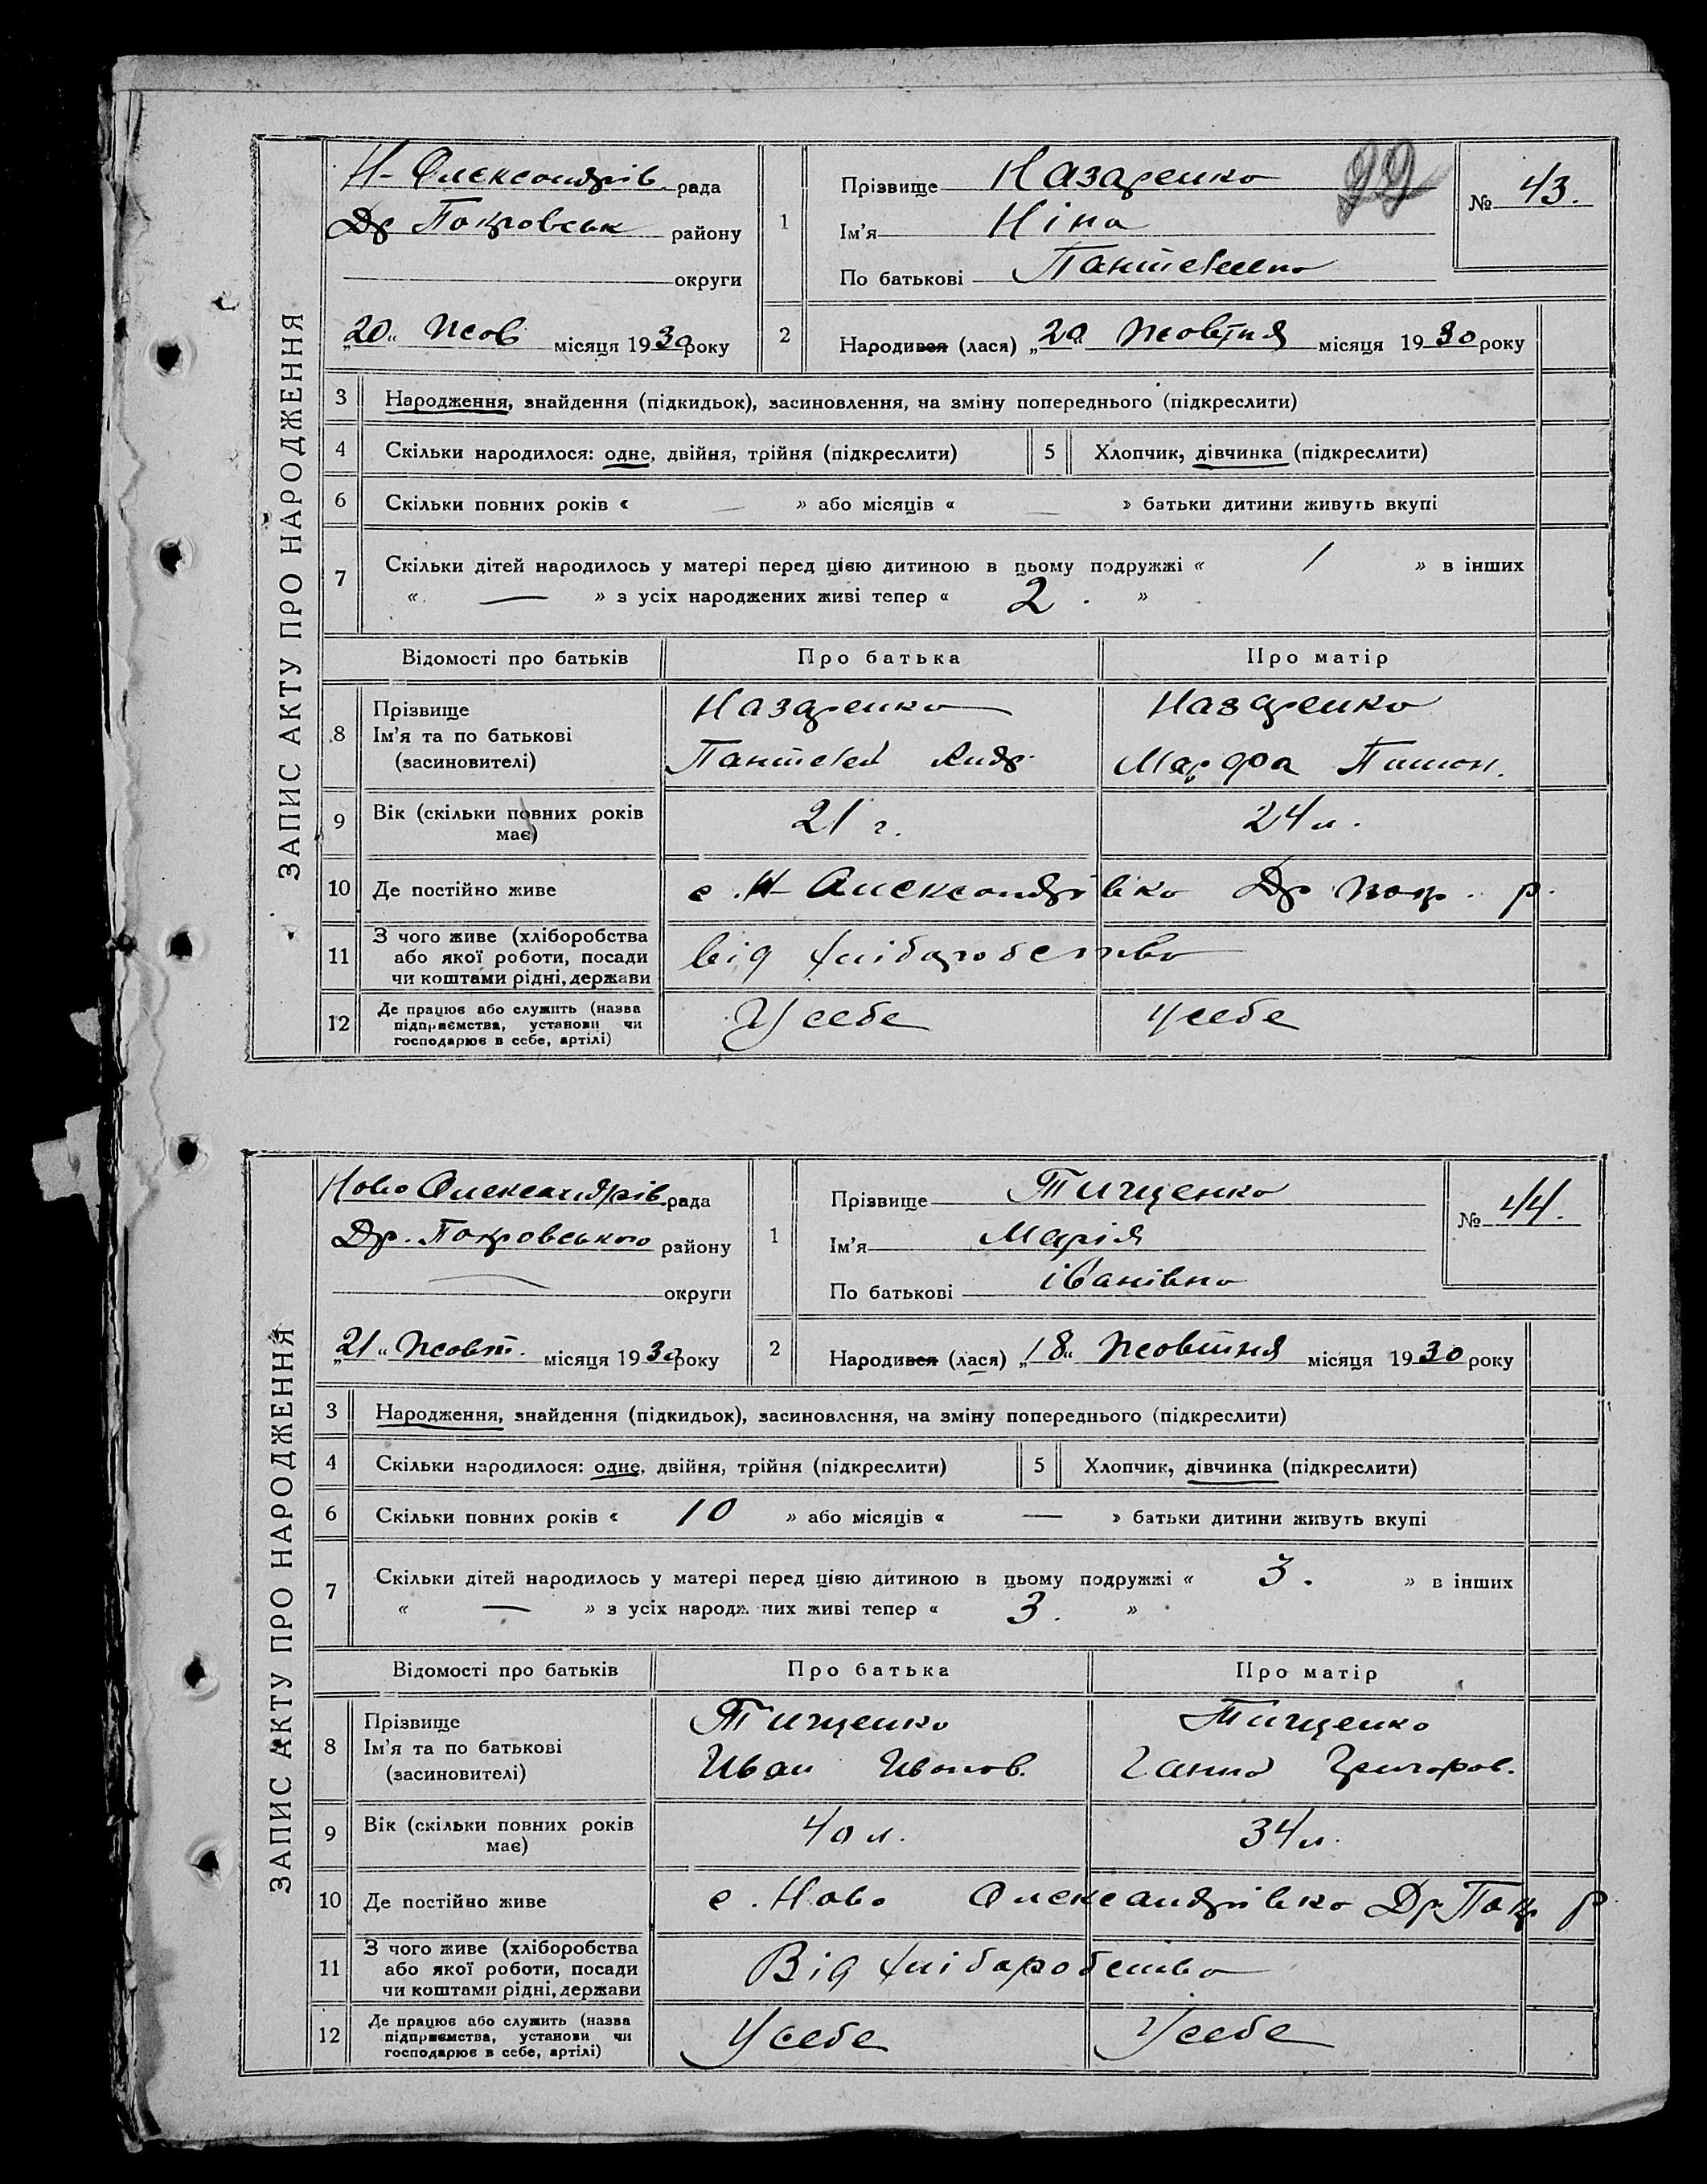 ЗАПИС АКТУ ПРО НАРОДЖЕННЯ
Н-Олександрів рада
Др Покровськ району
округи
„20“ Жов місяця 1930 року
1
Прізвище Назаренко
Ім'я Ніна
По батькові
99
№ 43.
2
Народився (лася) „20 Жовтня місяця 1930 року
3 Народження, знайдення (підкидьок), засиновлення, на зміну попереднього (підкреслити)
4 Скільки народилося: одне, двійня, трійня (підкреслити) 5 Хлопчик, дівчинка (підкреслити)
6 Скільки повних років « — » або місяців « — » батьки дитини живуть вкупі
7 Скільки дітей народилось у матері перед цією дитиною в цьому подружжі « 1 » в інших
« — » з усіх народжених живі тепер « 2 . »
Відомості про батьків Про батька Про матір
8 Прізвище
Ім'я та по батькові
(засновителі)
Назаренко
Пантелей Андр.
Назаренко
Марфа
9 Вік (скільки повних років
має)
21 г.
24 л.
10 Де постійно живе с. Н-Александрівка Др Покр. р.
11 З чого живе (хліборобства
або якої роботи, посади
чи коштами рідні, держави
від хліборобства
12 Де працює або служить (назва
підприємства, установи чи
господарює в себе, артілі)
У себе
У себе
ЗАПИС АКТУ ПРО НАРОДЖЕННЯ
Ново Олександрів рада
Др. Покровського району
округи
„21“ Жовт. місяця 1930 року
1
Прізвище Тищенко
Ім'я Марія
По батькові іванівна
№ 44.
2
Народився (лася) „18“ Жовтня місяця 1930 року
3 Народження, знайдення (підкидьок), засиновлення, на зміну попереднього (підкреслити)
4 Скільки народилося: одне, двійня, трійня (підкреслити) 5 Хлопчик, дівчинка (підкреслити)
6 Скільки повних років « 10 » або місяців « — » батьки дитини живуть вкупі
7 Скільки дітей народилось у матері перед цією дитиною в цьому подружжі « 3 . » в інших
« — » з усіх народжених живі тепер « 3 . »
Відомості про батьків Про батька Про матір
8 Прізвище
Ім'я та по батькові
(засиновителі)
Тищенко
Иван Иванов.
Тищенко
Ганна Григоров.
9 Вік (скільки повних років
має)
40 л.
34 л.
10 Де постійно живе с. Ново Олександрівка Др. Покр р
11 З чого живе (хліборобства
або якої роботи, посади
чи коштами рідні, держави
Від хліборобства
12 Де працює або служить (назва
підприємства, установи чи
господарює в себе, артілі)
У себе
У себе